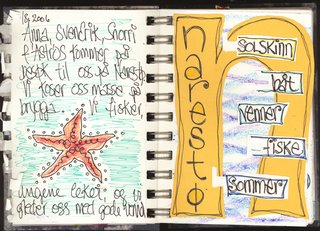 1/8 2006
Anna, Svendrik, Snorri
& Astrós kommer på
besøk til oss på Narestø
Vi koser oss masse på
brygga. Vi fisker
Ungene leker, og vi
gleder oss med gode
narestø
solskinn
båt
venner
fiske
sommer